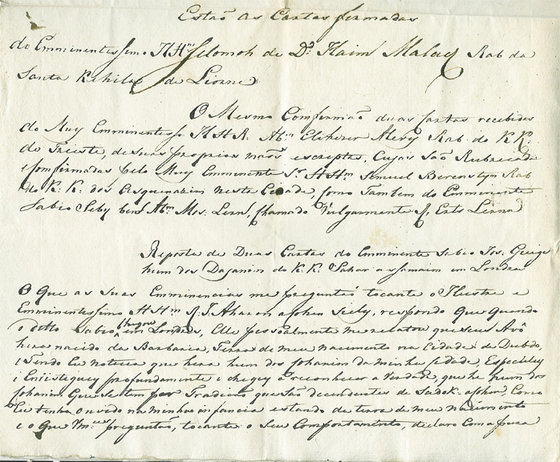 Estão as Cartas firmadas
do Emminentissimo A Hm Selomoh de Dd. Haim Malach Rab da
Santa Kehila de Liorne
O Mesmo Comfirmão duas Cartas recebidas
do Muy Emminentisso A H R. Abm Elihezer Alevy Rab do K K.
de Trieste, de suas proprias mãos escriptas, Cujas são
e Comfirmadas pelo Muy Emminente Sr. A Hm Semuel Berenstyn Rab
do K. K. dos Asquenazim nesta Cidade, como Tambem do Emminente
Sabio Seby ben Abm Mos. Lern, chamado Vulgarmente
Reposta de Duas Cartas do Emminente Sabio Jos.
hum dos Dayanim do K K. Sahar asamaim em Londres
O que as Suas Eminencias me pregunta tocante o Illustre e
Eminentissimo A Hm R. S. Aharon acohen Seily, respondo que Quando
o ditto Sabio chegou em Londres, Elle pessoalmente me relatou que seus Avô
hera nacido da Barbaria, Terra de meu Nacimento na Cidade de Dubdo,
e Tendo Eu noticia que hera hum dos Cohanim da minha Cidade
e profundamente e cheguey a reconhecer a Verdade, que he hum dos
Cohanim que se tem por Tradição que são decendentes de Sadok. acohen, Como
Eu tinha ouvido na minha infancia estando de terra de meu Nacimento
e o que Vmces preguntão, tocante o Seu Comportamento, declaro Com a pura